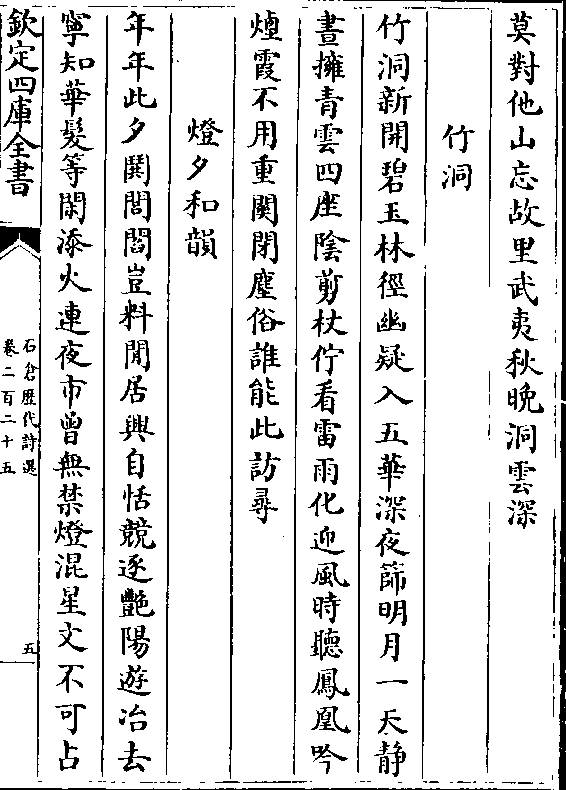 莫對他山忘故里武夷秋晚洞雲深
竹洞
竹洞新開碧玉林徑幽疑入五華深夜篩明月一天靜
晝擁青雲四座陰剪杖佇看雷雨化迎風時聽鳳凰吟
煙霞不用重関閉塵俗誰能此訪尋
燈夕和韻
年年此夕鬨閭閻豈料閒居興自恬競逐艷陽遊冶去
寧知華髮等閑添火連夜市曾無禁燈混星文不可占
欽定四庫全書
石倉歷代詩選
卷二百二十五
五